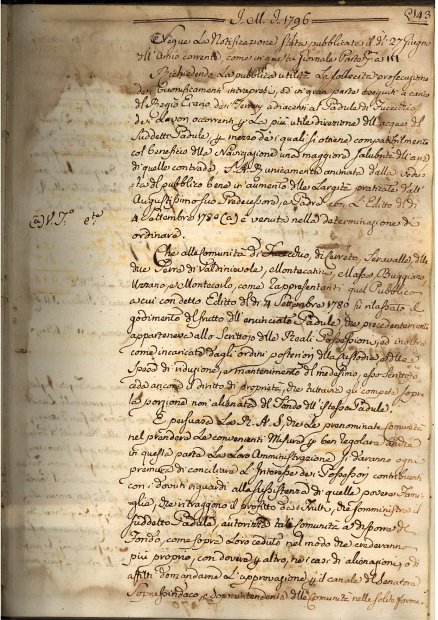 J. M. J. 1796
143
Segue La Notificazione Stata pubblicata il dì 27 Giugno
dell'Anno corrente, come in questo Giornale
Richiedendo La pubblica utilità La sollecita prosecuzione
dei buonificamenti intrapresi, ed in gran parte eseguiti a carico
del Regio Erario, dei Terreni adiacenti al Padule di Fucecchio
dei Lavori occorrenti p La più utile direzione dell'acque del
Suddetto Padule, p mezzo dei quali si ottiene compatibilmente
col beneficio della Navigazione una maggiore salubrità dell'aria
di quelle contrade, S. A. R. unicamente animata dalle vedute
del pubblico bene in aumento delle Largità praticate dell'
Augustissimo suo Predecessore, e Padre con L'Editto del dì
4 Settembre 1780 (a) è venuta nella determinazione di
ordinare.
(a) V. T.º
Che alle Comunità di Fucecchio, di Cerreto, Seravalle, delle
due Terre di Valdinievole, Montecatini, Massa, Buggiano,
Uzzano, e Montecarlo, come rappresentanti quel Pubblico
a cui con detto Editto del dì 4 Settembre 1780 fù rilasciato il
godimento del frutto dell'enunciato Padule, che precedentemente
appartenere allo Scrittojo delle Reali Possessioni, ed inoltre
come incaricate dagli ordini posteriori della Custodia, e delle
Spese di riduzione, e mantenimento del medesimo, esso Scrittojo
ceda ancora il diritto di proprietà, che tuttavia gli compete sopra
la porzione non alienata del Fondo dell'istesso Padule.
E persuasa La R. A. S. che Le prenominate Comunità
nel prendere Le convenienti Misure p ben regolare anche
in questa parte La Loro Amministrazione si daranno ogni
premura di conciliare L'Interesse dei Possessori contribuenti
con i dovuti riguardi alla sussistenza di quelle povere Fami-
glie, che ritraggono il profitto dei Frutti, che somministra il
suddetto Padule, autorizza tali Comunità a disporre del
Fondo, come sopra Loro ceduto nel modo che crederanno
più proprio, con dovere p altro, nei casi di alienazioni, o di
affitti domandarne L'approvazione p il canale del Senatore
Soprassindaco e Soprintendente delle Comunità nelle solite forme.